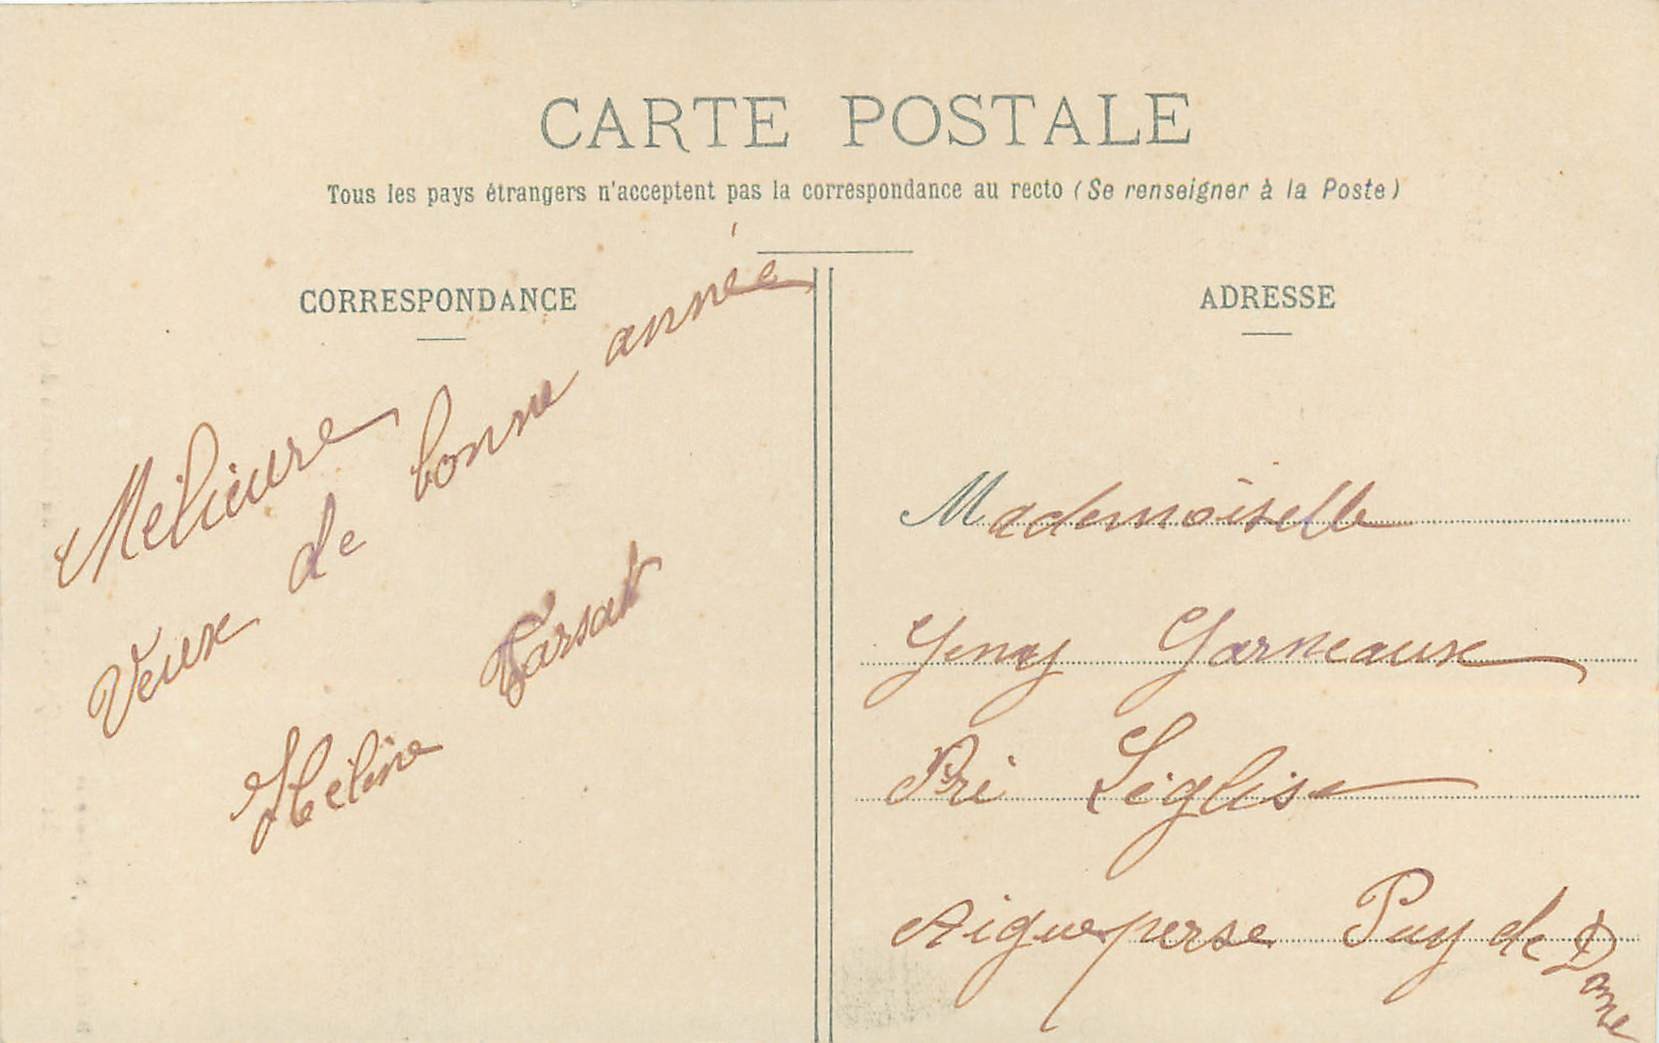 CARTE POSTALE
Tous les pays étrangers n'acceptent pas la correspondance au recto (Se renseigner à la Poste)
CORRESPONDANCE
Melieure
Veux de bonne année
Heline Tarsat
ADRESSE
Mademoiselle
Yeny Garneaux
Pré Léglise
Aigueperse Puy de Dome